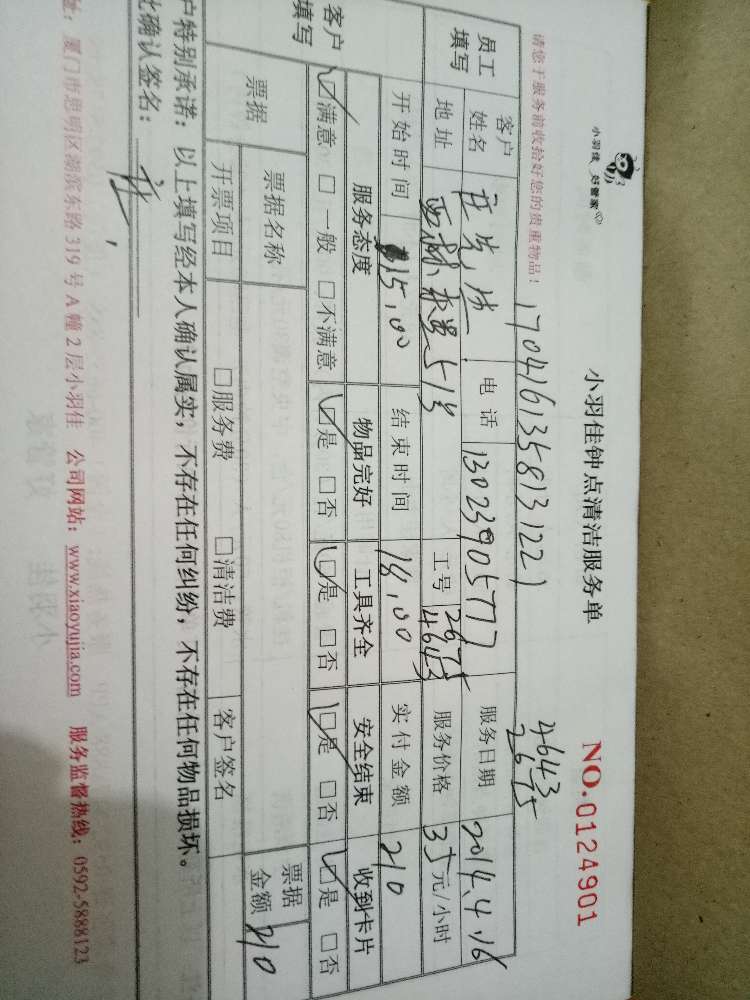 小羽佳 好管家
小羽佳钟点清洁服务单
NO.0124901
请您于服务前收拾好您的贵重物品！
1704161358131221
4643
2675
员工填写
客户姓名
电话 13023905777
服务日期 2014.4.16
地址
工号 2675 4643
服务价格 35元/小时
开始时间 15.00
结束时间 18.00
实付金额 210
客户填写
服务态度 物品完好 工具齐全 安全结束 收到卡片
☑满意 □一般 □不满意 ☑是 □否 ☑是 □否 ☑是 □否 ☑是 □否
票据
票据名称
票据金额 210
开票项目 □服务费 □清洁费 客户签名
户特别承诺：以上填写经本人确认属实，不存在任何纠纷，不存在任何物品损坏。
此确认签名：
址：厦门市思明区湖滨东路319号A幢2层小羽佳 公司网站：www.xiaoyujia.com 服务监督热线：0592-5888123